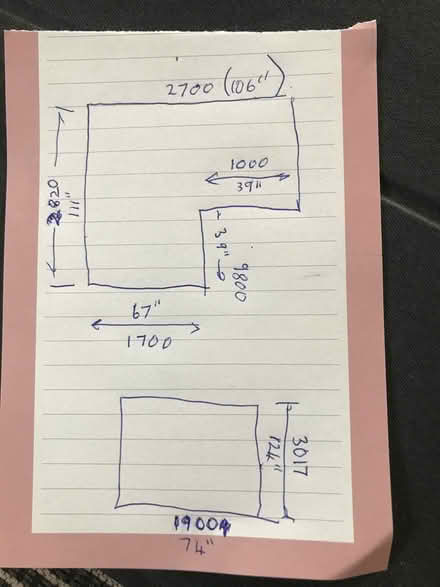 2700 (106")
1000
39"
2820
111"
39"
9800
67"
1700
3017
124"
1900
74"